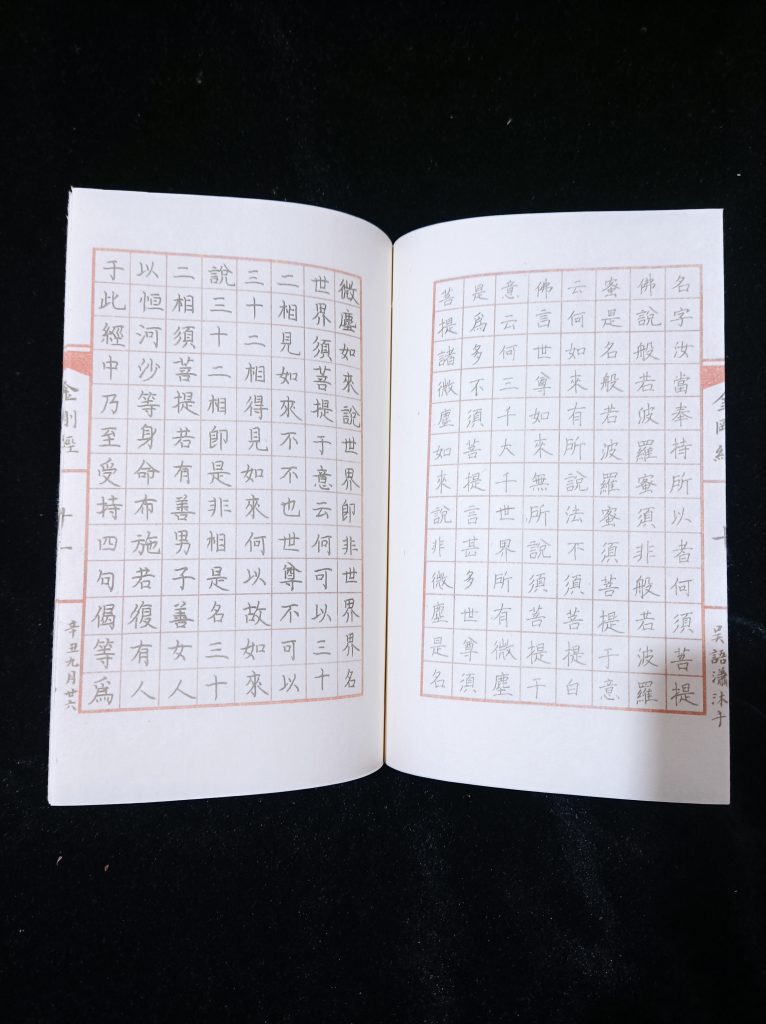 金剛經
十
吳語瀟沐子
名字汝當奉持所以者何須菩提
佛說般若波羅蜜須非般若波羅
蜜是名般若波羅蜜須菩提于意
云何如來有所說法不須菩提白
佛言世尊如來無所說須菩提于
意云何三千大千世界所有微塵
是爲多不須菩提言甚多世尊須
菩提諸微塵如來說非微塵是名
微塵如來說世界即非世界界名
世界須菩提于意云何可以三十
二相見如來不不也世尊不可以
三十二相得見如來何以故如來
說三十二相即是非相是名三十
二相須菩提若有善男子善女人
以恒河沙等身命布施若復有人
于此經中乃至受持四句偈等爲
金剛經
十一
辛丑九月廿六